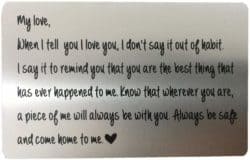 My love,
When I tell you I love you, I don't say it out of habit.
I say it to remind you that you are the best thing that
has ever happened to me. Know that wherever you are,
a piece of me will always be with you. Always be safe
and come home to me ♥